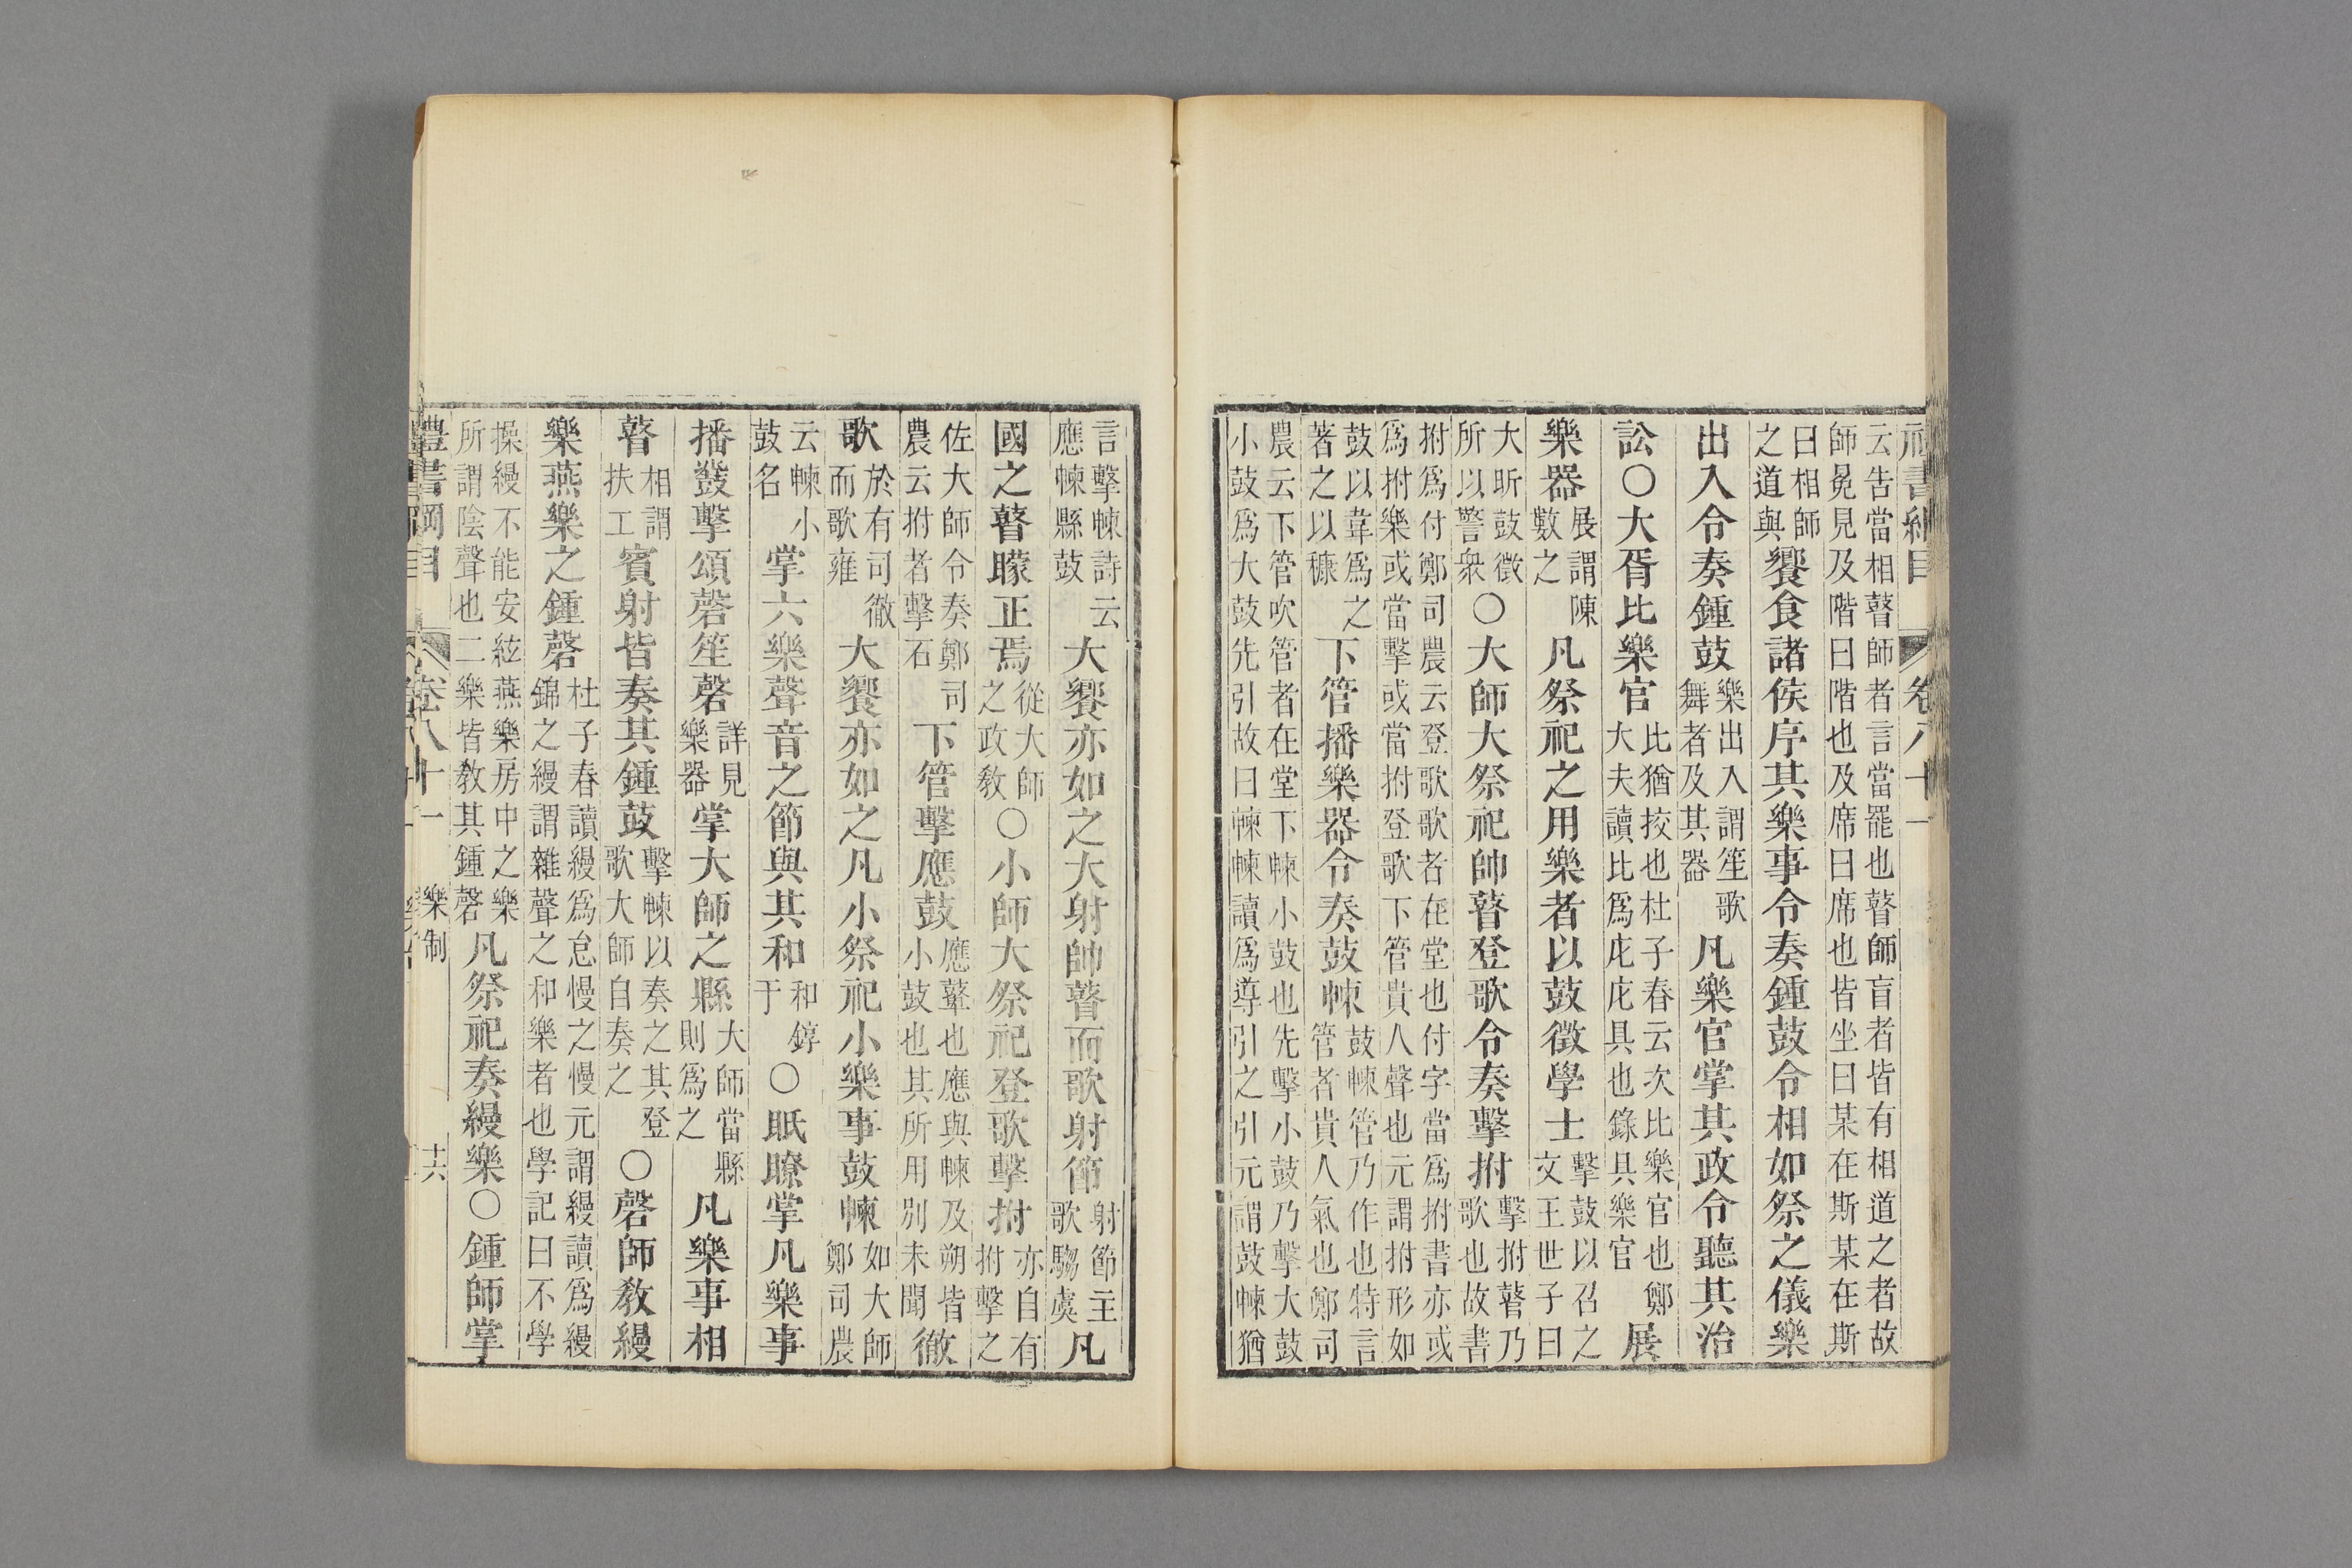 禮書綱目 卷八十一
云告當相瞽師者言當罷也瞽師盲者皆有相道之者故
師冕見及階曰階也及席曰席也皆坐曰某在斯某在斯
曰相師
之道與
饗食諸侯序其樂事令奏鍾鼓令相如祭之儀樂
出入令奏鍾鼓
樂出入謂笙歌
舞者及其器
凡樂官掌其政令聽其治
訟○大胥比樂官
比猶挍也杜子春云次比樂官也鄭
大夫讀比爲庀庀具也錄具樂官
展
樂器
展謂陳
數之
凡祭祀之用樂者以鼓徵學士
擊鼓以召之
文王世子曰
大昕鼓徵
所以警衆
○大師大祭祀帥瞽登歌令奏擊拊
擊拊瞽乃
歌也故書
拊爲付鄭司農云登歌歌者在堂也付字當爲拊書亦或
爲拊樂或當擊或當拊登歌下管貴人聲也元謂拊形如
鼓以韋爲之
著之以穅
下管播樂器令奏鼓㯥
鼓㯥管乃作也特言
管者貴人氣也鄭司
農云下管吹管者在堂下㯥小鼓也先擊小鼓乃擊大鼓
小鼓爲大鼓先引故曰㯥㯥讀爲導引之引元謂鼓㯥猶
言擊㯥詩云
應㯥縣鼓
大饗亦如之大射帥瞽而歌射節
射節主
歌騶虞
凡
國之瞽矇正焉
從大師
之政教
○小師大祭祀登歌擊拊
亦自有
拊擊之
佐大師令奏鄭司
農云拊者擊石
下管擊應鼓
應鼙也應與㯥及朔皆
小鼓也其所用別未聞
徹
歌
於有司徹
而歌雍
大饗亦如之凡小祭祀小樂事鼓㯥
如大師
鄭司農
云㯥小
鼓名
掌六樂聲音之節與其和
和錞
于
○眡瞭掌凡樂事
播鼗擊頌磬笙磬
詳見
樂器
掌大師之縣
大師當縣
則爲之
凡樂事相
瞽
相謂
扶工
賓射皆奏其鍾鼓
擊㯥以奏之其登
歌大師自奏之
○磬師教縵
樂燕樂之鍾磬
杜子春讀縵爲怠慢之慢元謂縵讀爲縵
錦之縵謂雜聲之和樂者也學記曰不學
操縵不能安絃燕樂房中之樂
所謂陰聲也二樂皆教其鍾磬
凡祭祀奏縵樂○鍾師掌
禮書綱目 卷八十一 樂制 十六